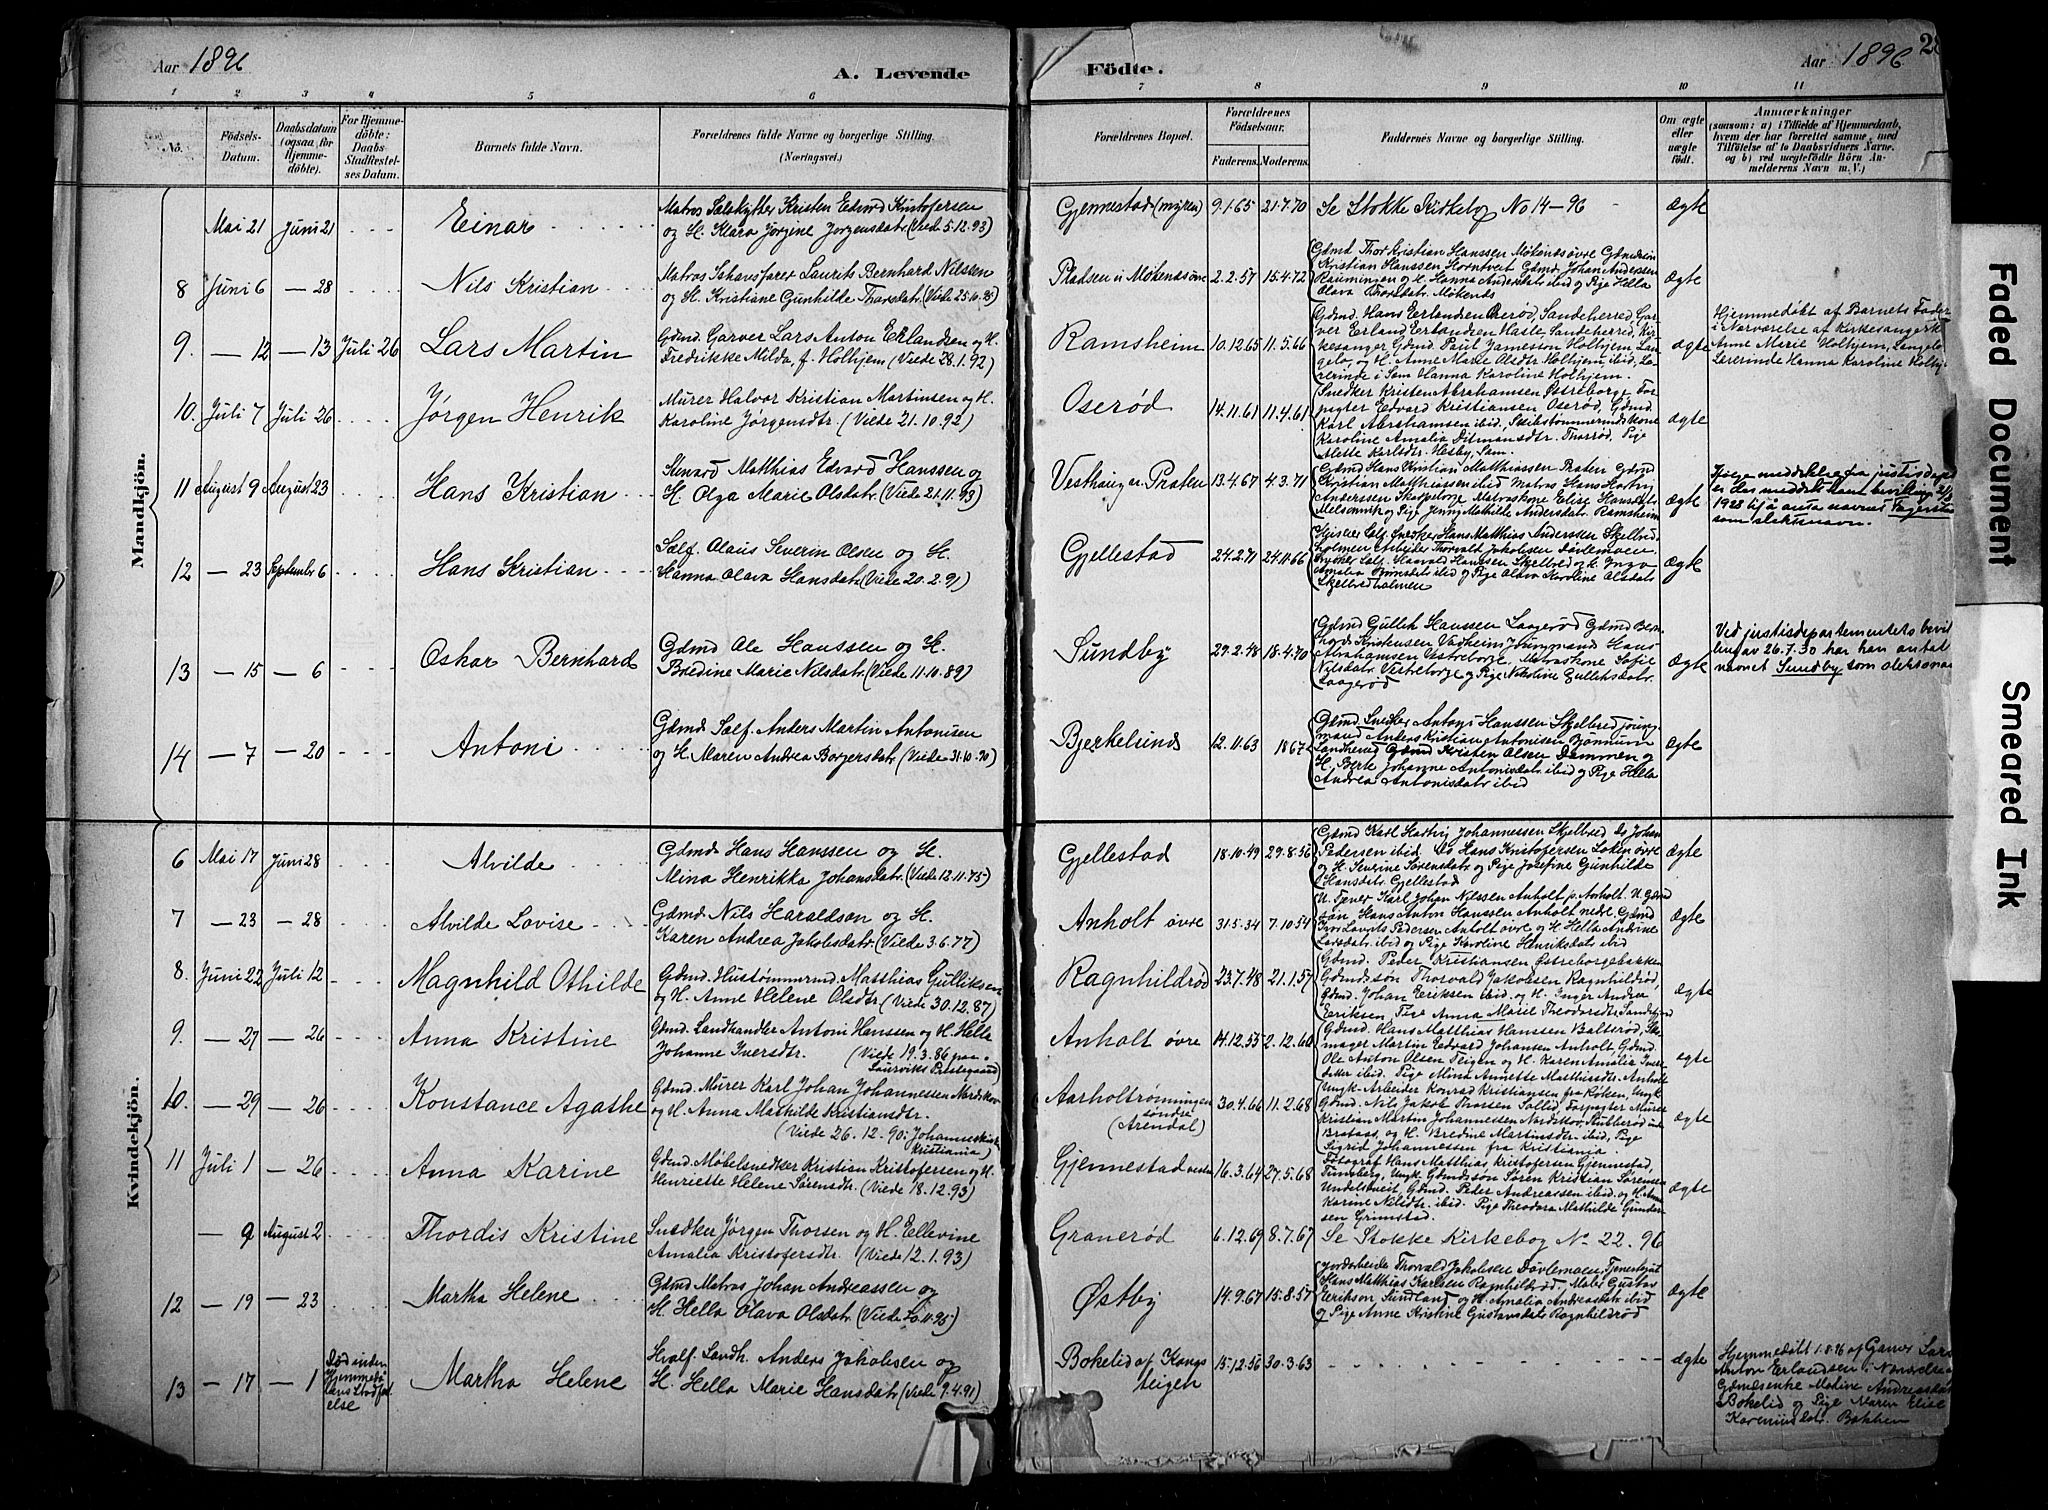 Aar 1896
A. Levende
Födte.
Aar 1896
28
1 2 3 4 5 6 7 8 9 10 11
No.
Födsels-Datum.
Daabsdatum (ogsaa for Hjemme-döbte).
For Hjemme-döbte: Daabs Stadfæstel-ses Datum.
Barnets fulde Navn.
Forældrenes fulde Navne og borgerlige Stilling.
(Næringsvei.)
Forældrenes Bopæl.
Forældrenes Födselsaar.
Faderens. Moderens.
Faddernes Navne og borgerlige Stilling.
Om ægte eller uægte födt.
Anmærkninger
(saasom: a) i Tilfælde af Hjemmedaab,
hvem der har forrettet samme, med
Tilföielse af to Daabsvidners Navne.
og b) ved uægtefödte Börn An-
melderens Navn m. V.)
Mandkjön.
Mai 21 Juni 21 Einar
Matros Sælskytter Kristen Edvard Kristofersen
og H. Klara Jørgine Jørgensdatr (Viede 5.12.93)
Gjennestad (myren) 9.1.65 21.7.70 Se Stokke Kirkebog No 14-96 Ægte
8 Juni 6 — 28 Nils Kristian
Matros Laurits Bernhard Nilssen
og H. Kristiane Gunhilde Thorsdatr (Viede 25.10.95)
Pladsen u. Møkenæsøvre 2.2.57 15.4.72
Gdmd Thor Kristian Hanssen Møkenæsøvre
Kristian Hanssen Horntvet Gdmd Johan Anderssen
og H. Hanna Andersdatr ibid og Pige Hella
Olava Thorsdatr Møkenæs
Ægte
9. — 12 — 13 Juli 26 Lars Martin
Gdmd. Garver Lars Anton Erlandsen og H.
Fredrikke Milda, f. Holhjem (Viede 28.1.92)
Ramsheim 10.12.65 11.5.66
Gdmd. Hans Erlandsen Sandeherred, Gar-
ver Erland Erlandsen Hasle Sandeherred, Kir-
kesanger Gdmd. Paul Jameson Holhjem Lan-
gelø, og H. Anne Marie Olsdtr Holhjem ibid, Læ-
rerinde i Sem Hanna Karoline Holhjem.
ægte
Hjemmedøbt af Barnets Fader
i Nærværelse af Kirkesanger
Anne Marie Holhjem, Langelø
Lærerinde Hanna Karoline Holhj.
10. Juli 7 Juli 26 Jørgen Henrik
Murer Halvor Kristian Martinsen og H.
Karoline Jørgensdtr. (Viede 21.10.92)
Oserød 14.11.61 11.4.61
Snedker Kristen Abrahamsen Østreborge, For-
pagter Edvard Kristiansen Oserød, Gdmd.
Karl Abrahamsen ibid, Skibstømmermandskone
Karoline Amalia Ditmansdtr. Thorrød, Pige
Mette Karlsdtr. Hesby, Sem.
ægte
11 August 9 August 23 Hans Kristian
Stuvard Matthias Edvard Hanssen og
H. Olga Marie Olsdatr (Viede 21.11.93)
Vesthaug u. Præten 13.4.67 4.3.71
Gdmd Hans Kristian Matthiassen Præten Gdmd
Kristian Matthiassen ibid Matros Hans Hartvig
Anderssen Matroskone Elise Hansdatr
Melsomvik og Pige Jenny Mathilde Andersdatr Ramsheim
Ægte
Ifølge meddelelse fra justisdepa
er der meddelt ham bevilling
1928 til å anta navnet
som slektsnavn.
12 — 23 September 6 Hans Kristian
Sælf. Olaus Severin Olsen og H.
Hanna Olava Hansdatr (Viede 20.2.91)
Gjellestad 24.2.71 24.11.66
Sælf. Snedker Hans Matthias Anderssen Skjelbred-
holmen Arbejder Thorvald Jakobsen Døvlemoen
Sælf. Haavald Hanssen Skjelbred og H. Inga
Amalia ibid og Pige Olava Karoline Olsdatr
Skjelbredholmen
Ægte
13 — 15 — 6 Oskar Bernhard
Gdmd Ole Hanssen og H.
Bredine Marie Nilsdatr (Viede 11.10.89)
Sundby 29.2.48 18.4.70
Gdmd Gullek Hanssen Laagerød Gdmd Bern-
hard Kristensen Vadheim Jungmand Hans
Abrahamsen Vestreborge, Matroskone Sofie
Nilsdatr Vestreborge og Pige Nikoline Gulleksdatr
Laagerød
Ægte
Ved justisdepartementets bevil
ling av 26.7.30 har han antatt
navnet Sundby som slektsnav
14 — 7 — 20 Antoni
Gdmd Sælf. Anders Martin Antonisen
og H. Maren Andrea Borgersdatr (Viede 31.10.90)
Bjerkelund 12.11.63 1867
Gdmd Snedker Antoni Hanssen Skjelbred, joung-
mand Anders Kristian Antonisen Bjønnum
Sandherred Gdmd Kristen Olsen Dammen og
H. Berte Johanne Antonisdatr ibid og Pige Hella
Andrea Antonisdatr ibid
Ægte
Kvindekjön.
6 Mai 17 Juni 28 Alvilde
Gdmd Hans Hanssen og H.
Mina Henrikka Johansdatr (Viede 12.11.75)
Gjellestad 18.10.49 29.8.56
Gdmd Karl Hartvig Johannessen Skjelbred Do Johan
Pedersen ibid Do Hans Kristofersen Løken øvre
og H. Severine Sørensdatr og Pige Josefine Gunhilde
Hansdatr. Gjellestad
Ægte
7 — 23 — 28 Alvilde Lovise
Gdmd. Nils Haraldsen og H.
Karen Andrea Jakobsdatr (Viede 3.6.77)
Anholt øvre 31.5.34 7.10.54
U. Tjener Karl Johan Nilssen Anholt p. Anholt. U. Gdmd
søn Hans Anton Hanssen Anholt nedr. Gdmd
Thor Laurits Pedersen Anholt øvre og H. Hella Andrine
Larsdatr ibid og Pige Karoline Henriksdatr ibid
Ægte
8. Juni 22 Juli 12 Magnhild Othilde
Gdmd. Hustømmermd. Matthias Gulliksen
og H. Anne Helene Olsdtr (Viede 30.12.87)
Ragnhildrød 23.7.48 21.1.57
Gdmd. Peder Kristiansen Østreborgebakken
Gdmdssøn Thorvald Jakobsen Ragnhildrød,
Gdmd. Johan Eriksen ibid. og H. Inger Andrea
Eriksen, Pige Anna Marie Theodorsdtr, Sandefjord
ægte
9. — 27 — 26 Anna Kristine
Gdmd. Landhandler Antoni Hanssen og H. Hella
Johanne Iversdtr. (Viede 19.3.86 paa
Laurviks Prestegaard)
Anholt øvre 14.12.55 2.12.66
Gdmd. Hans Matthias Hanssen Baltsrød, Sko-
mager Martin Edvard Johansen Anholt, Gdmd.
Ole Anton Olsen Teigen og H. Karen Amalia Iver-
datter ibid. Pige Mina Annette Matthisdtr. Anholt
ægte
10. — 29 — 26 Konstance Agathe
Gdmd. Murer Karl Johan Johannessen Nordskov
og H. Anna Mathilde Kristiansdtr.
(Viede 26.12.90 i Johanneskirk.
Kristiania)
Aarholtrønningen
søndre
(Arendal)
30.4.66 11.2.68
Ungk. Arbeider Konrad Kristiansen fra Røken, Ungk.
Gdmd. Nils Jakob Thorsen Sollid, Forpagter Murer
Kristian Martin Johannessen Nordskov, Stubberød u.
Brataas, og H. Bredine Martinsdtr. ibid, Pige
Sigrid Johannessen fra Kristiania.
ægte
11 Juli 1 — 26 Anna Karine
Gdmd. Møbelsnedker Kristian Kristofersen og H.
Henriette Helene Sørensdtr. (Viede 18.12.93)
Gjennestad 16.3.64 27.5.68
Fotograf Hans Matthias Kristofersen Gjennestad,
Tunsberg, Ungk. Gdmdssøn Søren Kristian Sørensen
Undelstveit, Gdmd. Peder Andreassen ibid og H. Ann
Karine Nilsdtr. ibid. Pige Theodora Mathilde Gunder-
sen Grimstad.
ægte
— 9 August 2 Thordis Kristine
Snedker Jørgen Thorsen og H. Ellevine
Amalia Kristofersdtr. (Viede 12.1.93)
Granerød 6.12.69 8.7.67 Se Stokke Kirkebog No 22.96
12 — 19 — 23 Martha Helene
Gdmd Matros Johan Andreassen og
H. Hella Olava Olsdatr (Viede 20.11.95)
Østby 14.9.67 15.8.57
Jordarbeider Thorvald Jakobsen Døvlemoen, Tjenestgut
Hans Matthias Karlsen Ragnhildrød, Maler Gustav
Erikson Sundland og H. Amalia Andreasdatr ibid
og Pige Anne Kristine Gustavsdatr Ragnhildrød
Ægte
13 — 17 — 1
Død inden
Hjemmedaa
bens Stadfæst
else
Martha Helene
Hvalf. Landh. Anders Jakobsen og
H. Hella Marie Hansdatr (Viede 9.4.91)
Bokelid af Kongs
teigen
15.12.56 30.3.63
ægte
Hjemmedøbt 1.8.96 af Garver Lars
Anton Erlandsen i Nærværelse a
Gdmdsenke Maline Andreasdat
Bokelid og Pige Maren Elise
Karenius dtr. Bakken
Faded Document
Smeared Ink